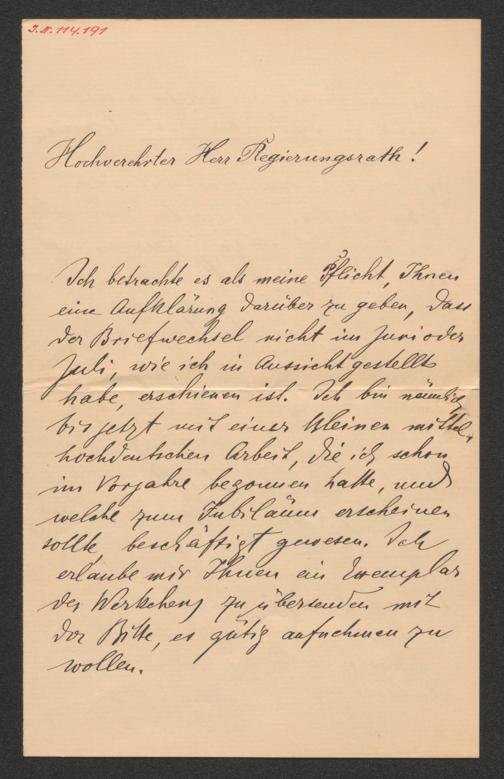 J.N. 114.191
Hochverehrter Herr Regierungsrath!
Ich betrachte es als meine Pflicht, Ihnen
eine Aufklärung darüber zu geben, dass
der Briefwechsel nicht im Juni oder
Juli, wie ich in Aussicht gestellt
habe, erschienen ist. Ich bin nämlich
bis jetzt mit einer kleinen mittel-
hochdeutschen Arbeit, die ich schon
im Vorjahre begonnen hatte, und
welche zum Jubiläum erscheinen
sollte, beschäftigt gewesen. Ich
erlaube mir Ihnen ein Exemplar
des Werkchens zu übersenden mit
der Bitte, es gütig aufnehmen zu
wollen.